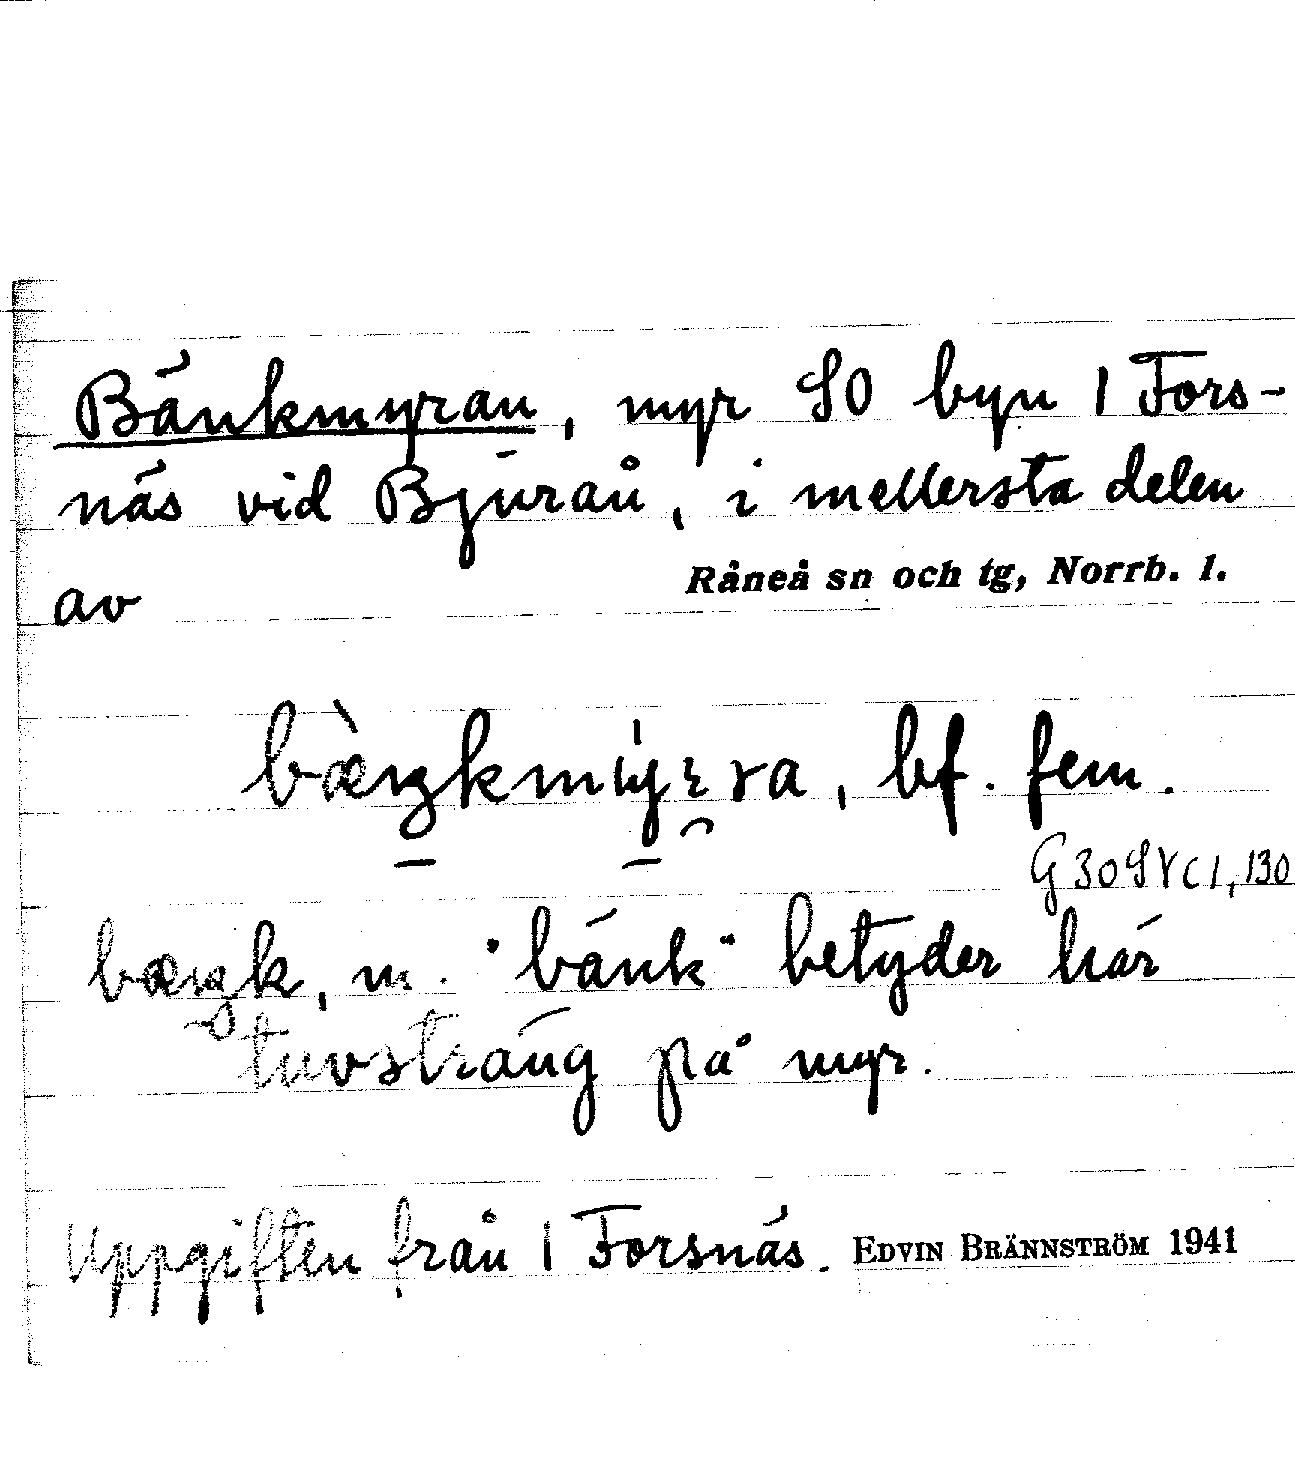 Bänkmyran, myr SO byn 1 Fors-
näs vid Bjurån, i mellersta delen
av Råneå sn och tg, Norrb. l.
bf. fem.
G30SVC1,130
m. "bänk" betyder här
tuvsträng på myr.
Uppgiften från 1 Forsnäs. EDVIN BRÄNNSTRÖM 1941